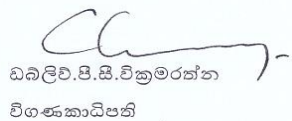 ඩබ්ලිව්.පී.සී.වික්‍රමරත්න
විගණකාධිපති